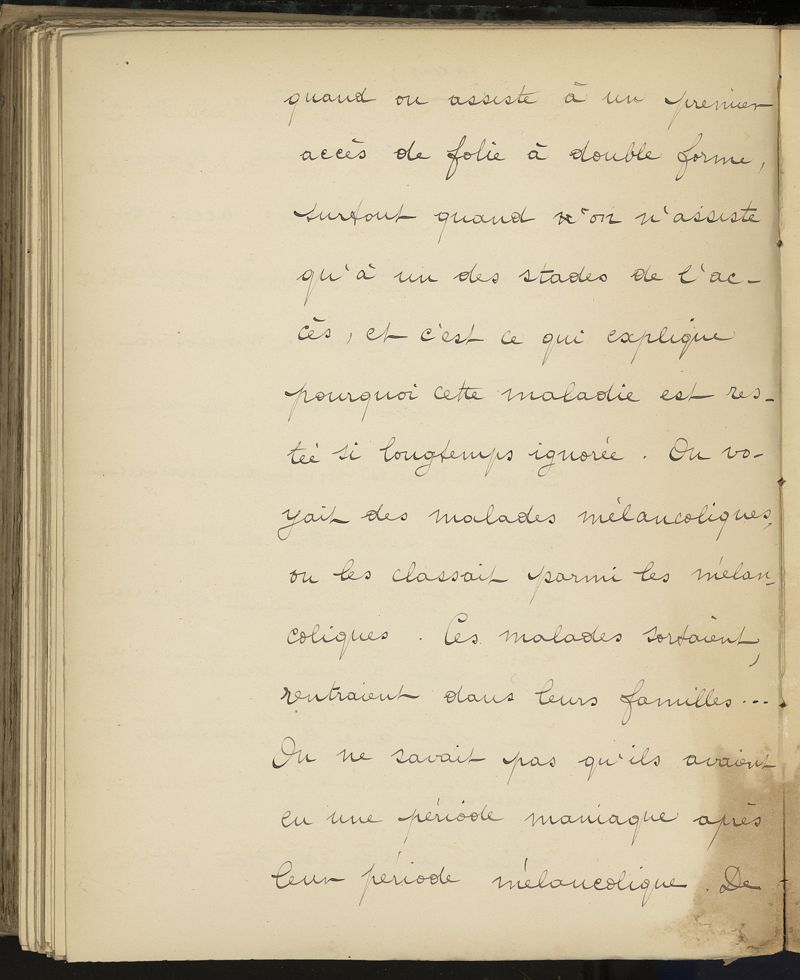 quand on assiste à un premier
accès de folie à double forme,
surtout quand on n'assiste
qu'à un des stades de l'ac-
cès, et c'est ce qui explique
pourquoi cette maladie est res-
tée si longtemps ignorée. On vo-
yait des malades mélancoliques,
on les classait parmi les mélan-
coliques. Ces malades sortaient,
rentraient dans leurs familles...
On ne savait pas qu'ils avaient
eu une période maniaque après
leur période mélancolique. De